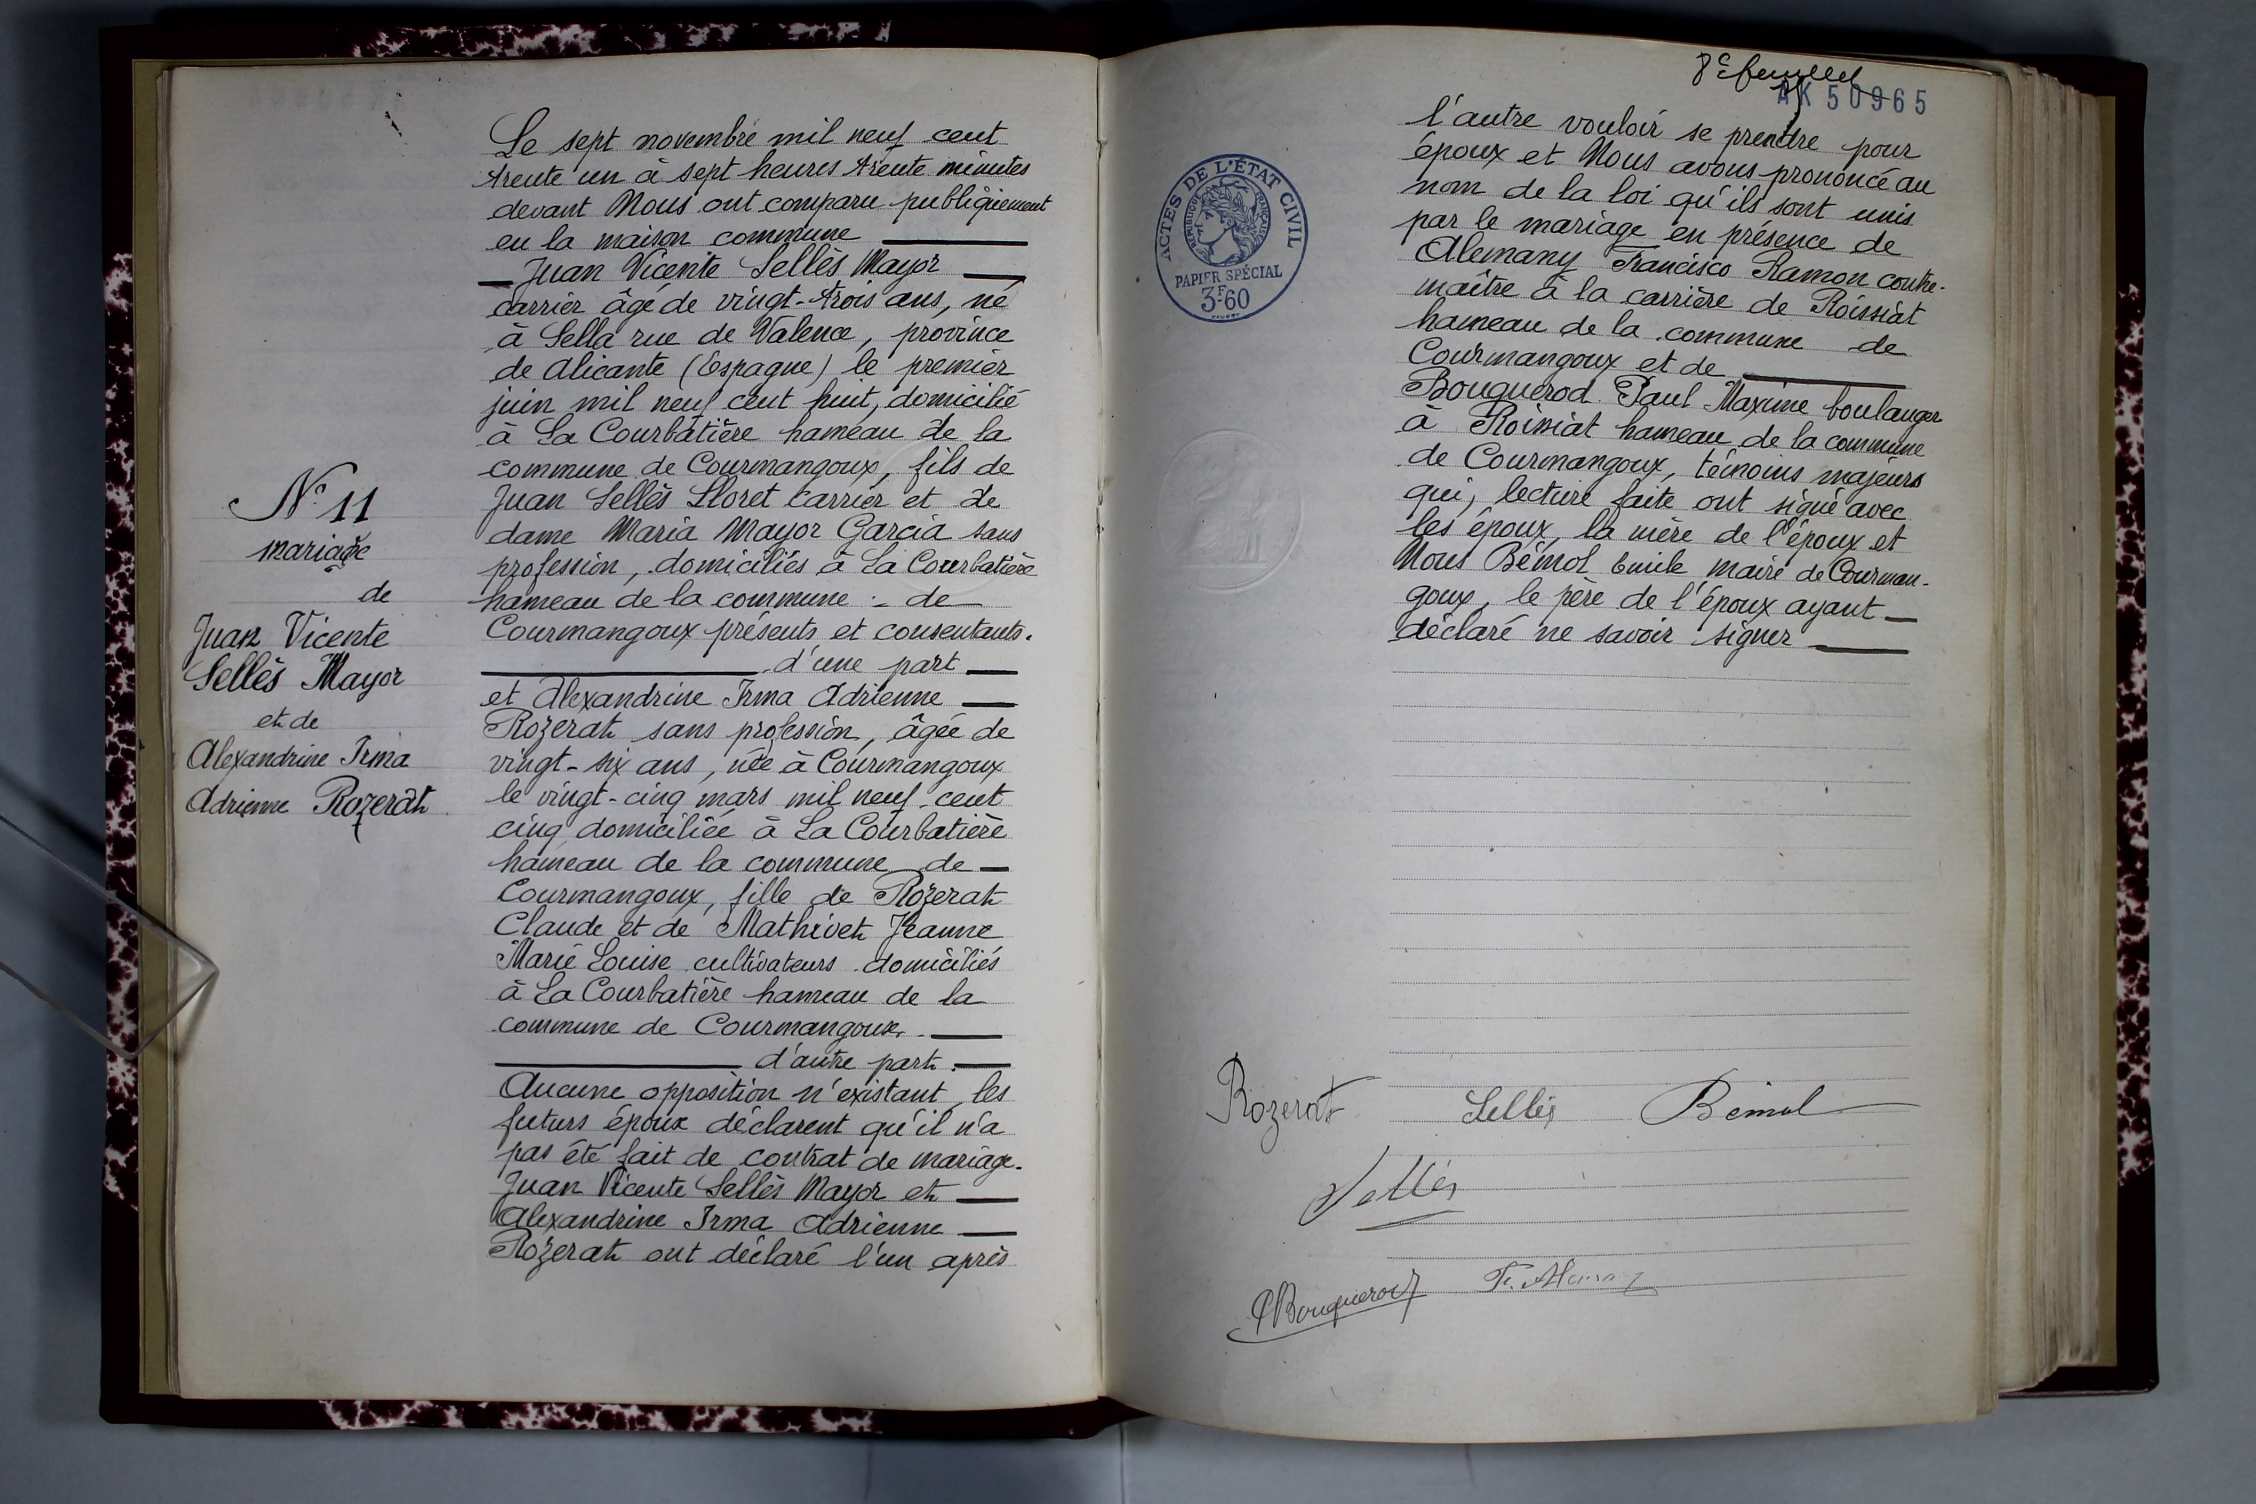 Le sept novembre mil neuf cent
trente un à sept heures trente minutes
devant Nous ont comparu publiquement
en la maison commune
Juan Vicente Sellès Mayor
carrier âgé de vingt-trois ans, né
à Sella rue de Valence, province
de Alicante (Espagne) le premier
juin mil neuf cent huit, domicilié
à La Courbatière hameau de la
commune de Courmangoux, fils de
Juan Sellès Lloret carrier et de
dame Maria Mayor Garcia sans
profession, domiciliés à La Courbatière
hameau de la commune - de
Courmangoux présents et consentants.
d'une part
et Alexandrine Irma Adrienne
Rozerat sans profession, âgée de
vingt-six ans, née à Courmangoux
le vingt-cinq mars mil neuf cent
cinq domiciliée à La Courbatière
hameau de la commune de
Courmangoux, fille de Rozerat
Claude et de Mathivet Jeanne
Marie Louise cultivateurs domiciliés
à La Courbatière hameau de la
commune de Courmangoux.
d'autre part.
Aucune opposition n'existant, les
futurs époux déclarent qu'il n'a
pas été fait de contrat de mariage.
Juan Vicente Sellès Mayor et
Alexandrine Irma Adrienne
Rozerat ont déclaré l'un après
N° 11
mariage
de
Juan Vicente
Sellès Mayor
et de
Alexandrine Irma
Adrienne Rozerat
8e feuillet
AK 50965
l'autre vouloir se prendre pour
époux et Nous avons prononcé au
nom de la loi qu'ils sont unis
par le mariage en présence de
Alemany Francisco Ramon contre-
maître à la carrière de Roissiat
hameau de la commune de
Courmangoux et de
Bouquerod Paul Maxime boulanger
à Roissiat hameau de la commune
de Courmangoux, témoins majeurs
qui, lecture faite ont signé avec
les époux, la mère de l'époux et
Nous Bémol Emile maire de Courman-
goux, le père de l'époux ayant
déclaré ne savoir signer
ACTES DE L'ÉTAT CIVIL
RÉPUBLIQUE FRANÇAISE
PAPIER SPÉCIAL
3F60
Rozerat Sellés Bémol
Sellés
PBouquerod Fr. Alemany